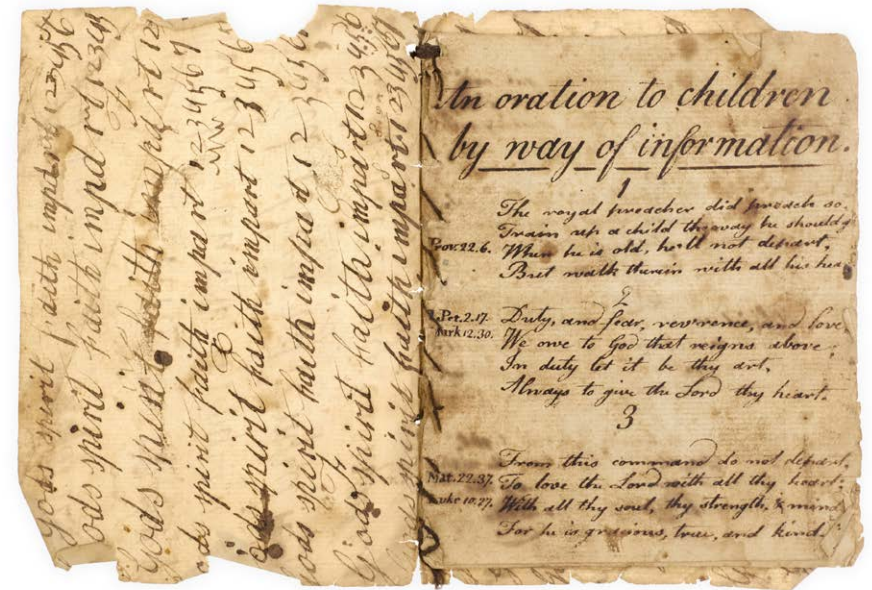 gods spirit faith impart 123456
ods spirit faith impart 12345
Gods spirit faith impart 12
ods spirit faith impart 1234567
ods spirit faith impart 123456
ods spirit faith impart 123456
Gods spirit faith impart 123456
ods spirit faith impart 1234567
An oration to children
by way of information.
1
The royal preacher did preach so.
Train up a child the way he should
Prov. 22.6. When he is old, he'll not depart,
But walk therein with all his
2
1.Pet.2.17. Duty, and fear, rev'rence, and love,
Mark 12.30. We owe to God that reigns above;
In duty let it be thy art,
Always to give the Lord thy heart.
3
From this command do not depart,
Mat.22.37. To love the Lord with all thy heart;
Luke 10.27. With all thy soul, thy strength, & mind
For he is gracious, true, and kind.